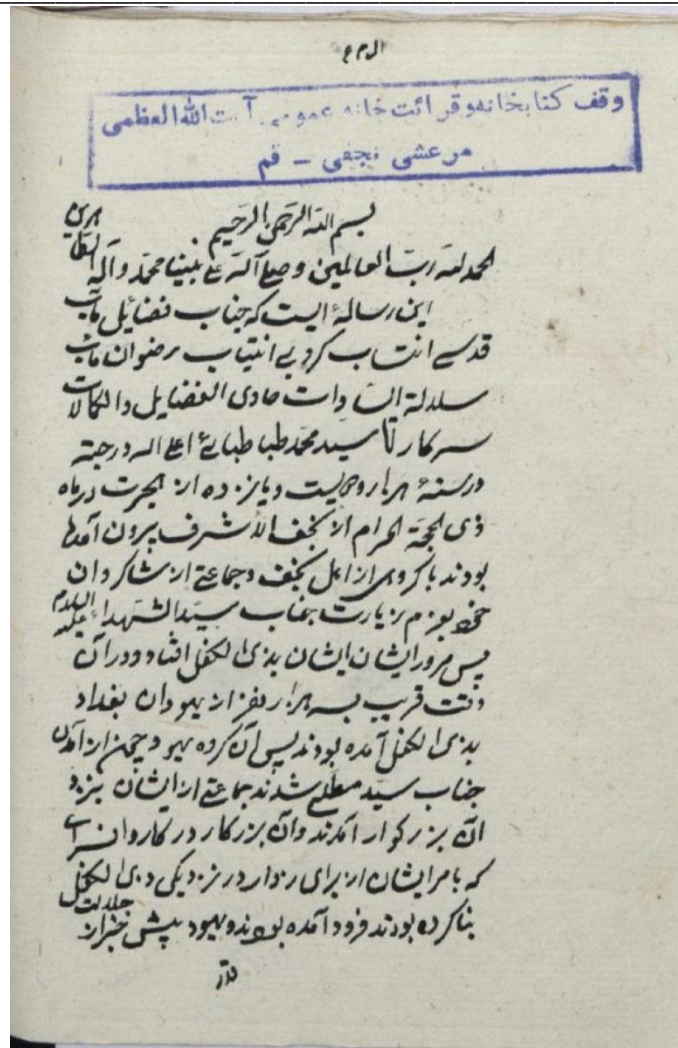 وقف کتابخانه و قرائت خانه عمومی آیت الله العظمی
مرعشی نجفی - قم
بسم الله الرحمن الرحیم
الحمد لله رب العالمین و صلی الله علی نبینا محمد و آله
این رساله ایست که جناب فضایل مآب
قدسی انتساب کروبی انتیاب رضوان مآب
سلالة السادات حاوی الفضایل والکمالات
سرکار سید محمد طباطبائی اعلی الله درجته
در سنهٔ هزار و دویست و یازده از هجرت در ماه
ذی الحجة الحرام از نجف الاشرف بیرون آمده
بودند با کروهی از اهل نجف و جماعتی از شاکردان
خود بعزم زیارت جناب سید الشهداء علیه السلام
پس مرور ایشان بذی الکفل افتاد و در آن
وقت قریب بسه هزار نفر از یهودان بغداد
بذی الکفل آمده بودند پس آن کروه یهود چون از آمدن
جناب سید مطلع شدند جماعتی از ایشان بنزد
آن بزرکوار آمدند و آن بزرکوار در کاروان سرای
که بامر ایشان از برای زوار در نزدیکی ذی الکفل
بنا کرده بودند فرود آمده بودند و یهود پیش خبر از جلالت
قدر